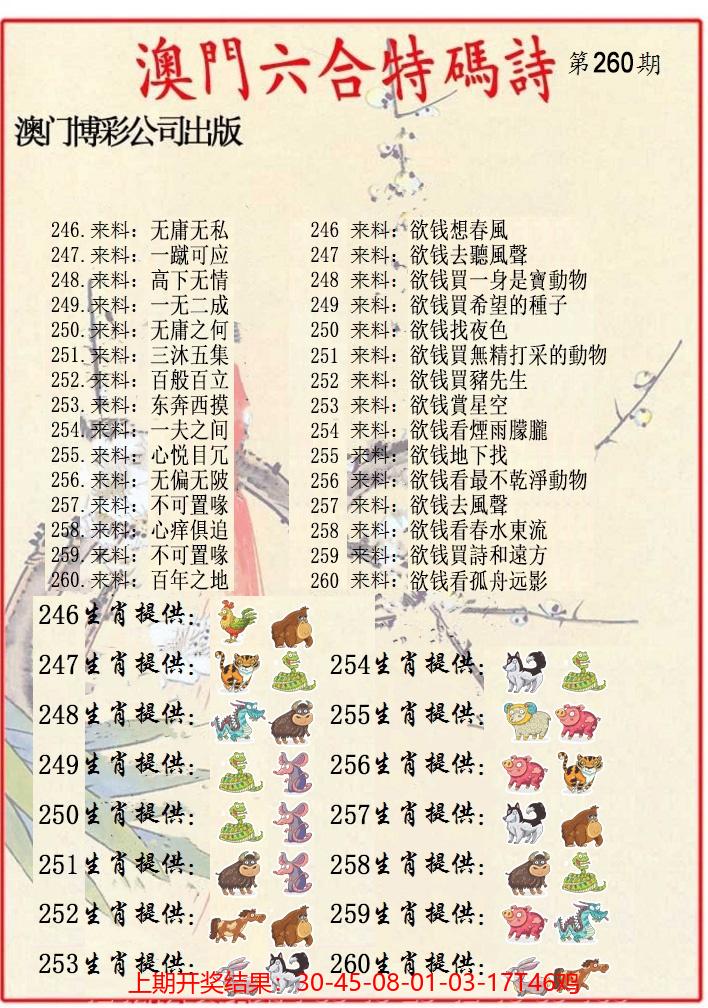 澳門六合特碼詩 第260期
澳门博彩公司出版
246.来料：无庸无私
247.来料：一蹴可应
248.来料：高下无情
249.来料：一无二成
250.来料：无庸之何
251.来料：三沐五集
252.来料：百般百立
253.来料：东奔西摸
254.来料：一夫之间
255.来料：心悦目冗
256.来料：无偏无陂
257.来料：不可置喙
258.来料：心痒俱迫
259.来料：不可置喙
260.来料：百年之地
246 来料：欲钱想春風
247 来料：欲钱去聽風聲
248 来料：欲钱買一身是寶動物
249 来料：欲钱買希望的種子
250 来料：欲钱找夜色
251 来料：欲钱買無精打采的動物
252 来料：欲钱買豬先生
253 来料：欲钱賞星空
254 来料：欲钱看煙雨朦朧
255 来料：欲钱地下找
256 来料：欲钱看最不乾淨動物
257 来料：欲钱去風聲
258 来料：欲钱看春水東流
259 来料：欲钱買詩和遠方
260 来料：欲钱看孤舟远影
246生肖提供：
247生肖提供：
248生肖提供：
249生肖提供：
250生肖提供：
251生肖提供：
252生肖提供：
253生肖提供：
254生肖提供：
255生肖提供：
256生肖提供：
257生肖提供：
258生肖提供：
259生肖提供：
260生肖提供：
上期开奖结果：30-45-08-01-03-17T46鸡